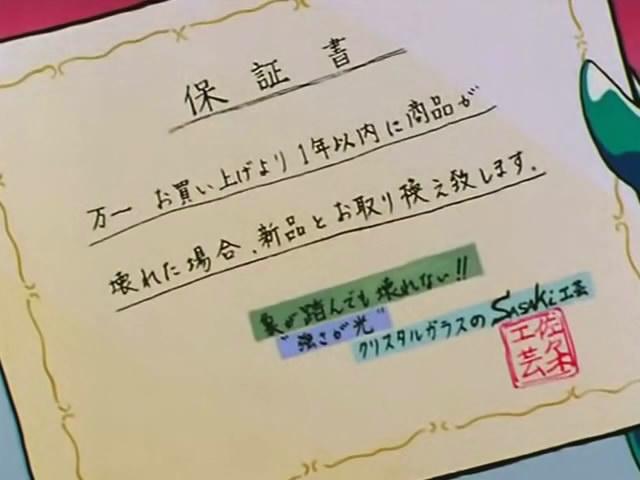 保証書
万一 お買い上げより1年以内に商品が
壊れた場合、新品とお取り換え致します.
象が踏んでも壊れない!!
"強さが光"
クリスタルガラスのSASAKi工芸
佐々木工芸